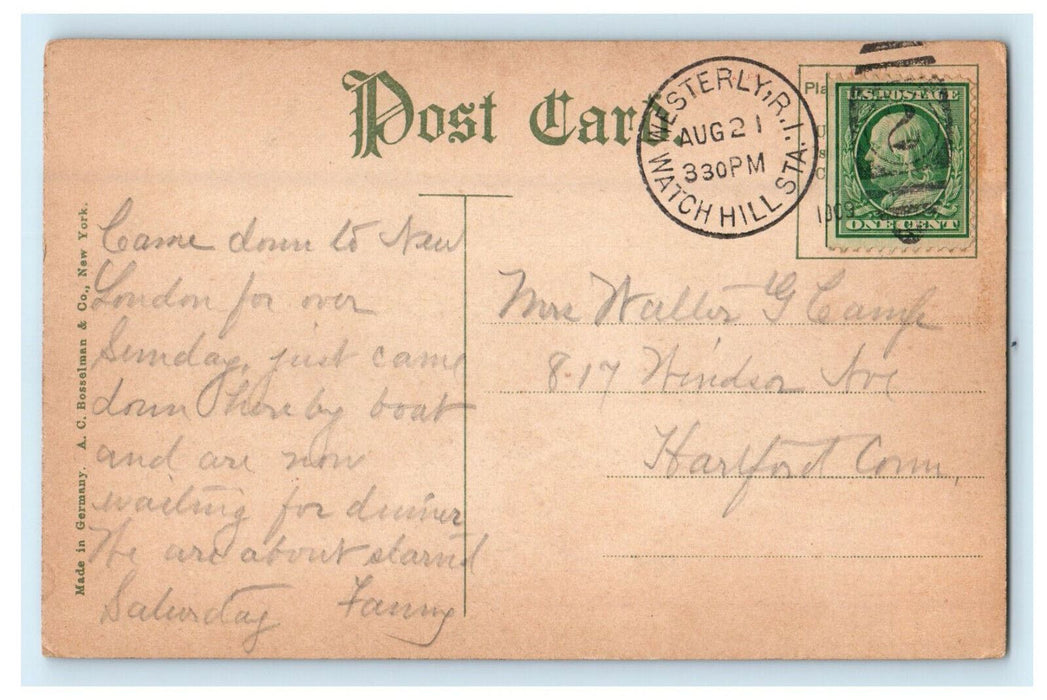 Post Card
WESTERLY, R.I.
AUG 21
330PM
WATCH HILL STA.
1909
Pla
U.S. POSTAGE
2
ONE CENT
Came down to New
London for over
Sunday, just came
down here by boat
and are now
waiting for dinner
We are about starved
Saturday Fanny
Mrs Walter G Camp
817 Windsor Ave
Hartford Conn,
Made in Germany. A. C. Bosselman & Co., New York.